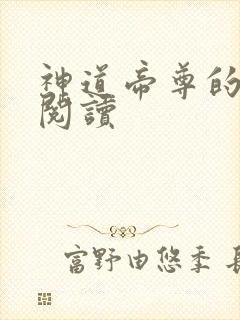 神道帝尊的
閱讀
富野由悠季